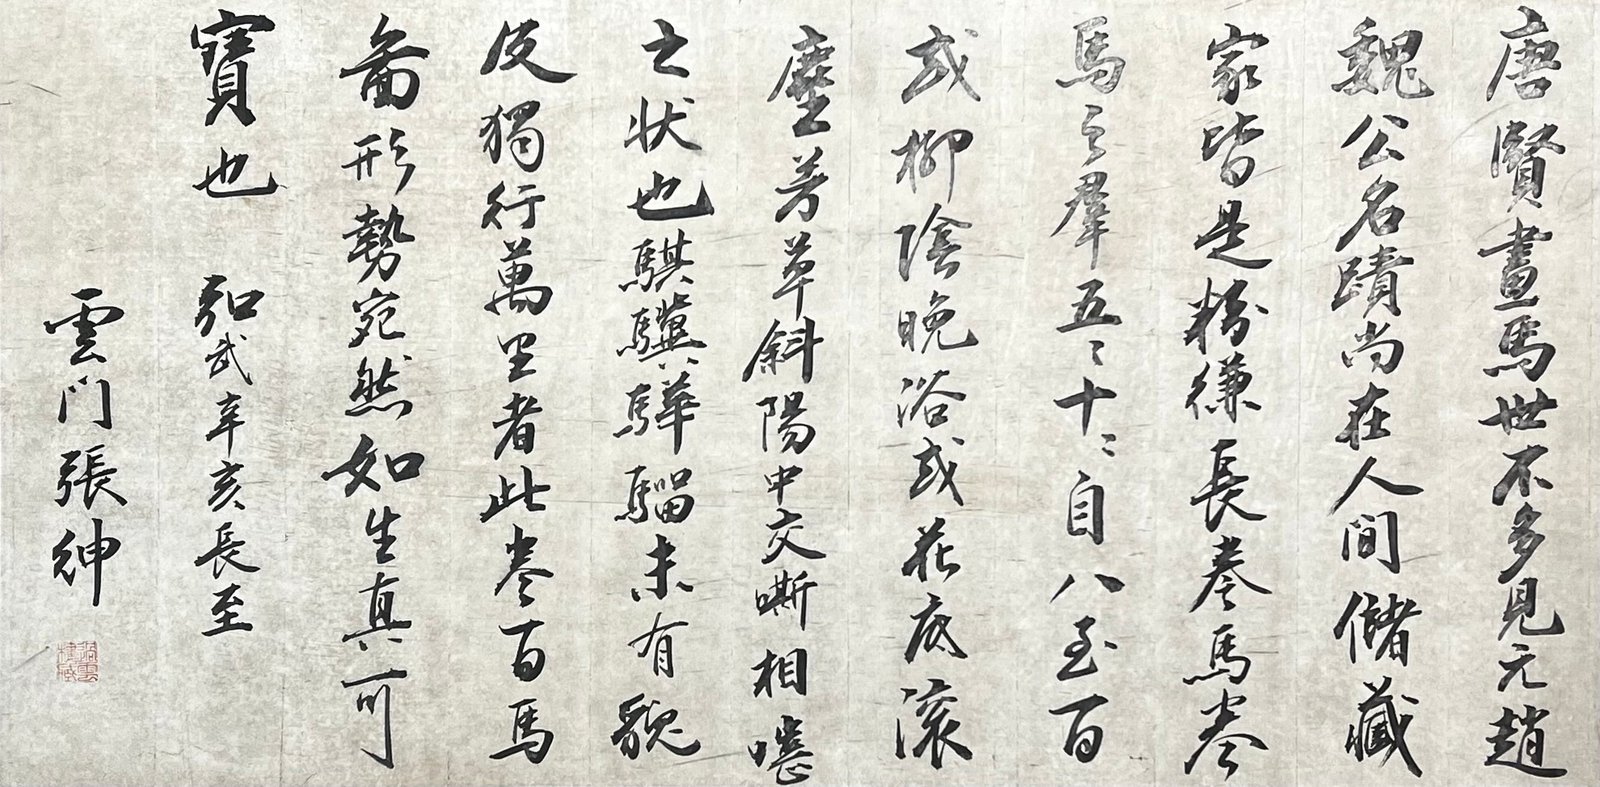 唐賢畫馬世不多見元趙
魏公名蹟尚在人間儲藏
家皆是粉縑長卷馬卷
馬之羣五〻十〻自八至百
或柳陰晚浴或花底滾
塵芳草斜陽中交嘶相嚙
之状也騏驥驊騮未有貌
及獨行萬里者此卷百馬
啚形勢宛然如生真可
寶也 弘武辛亥長至
雲門張紳
過雲樓藏